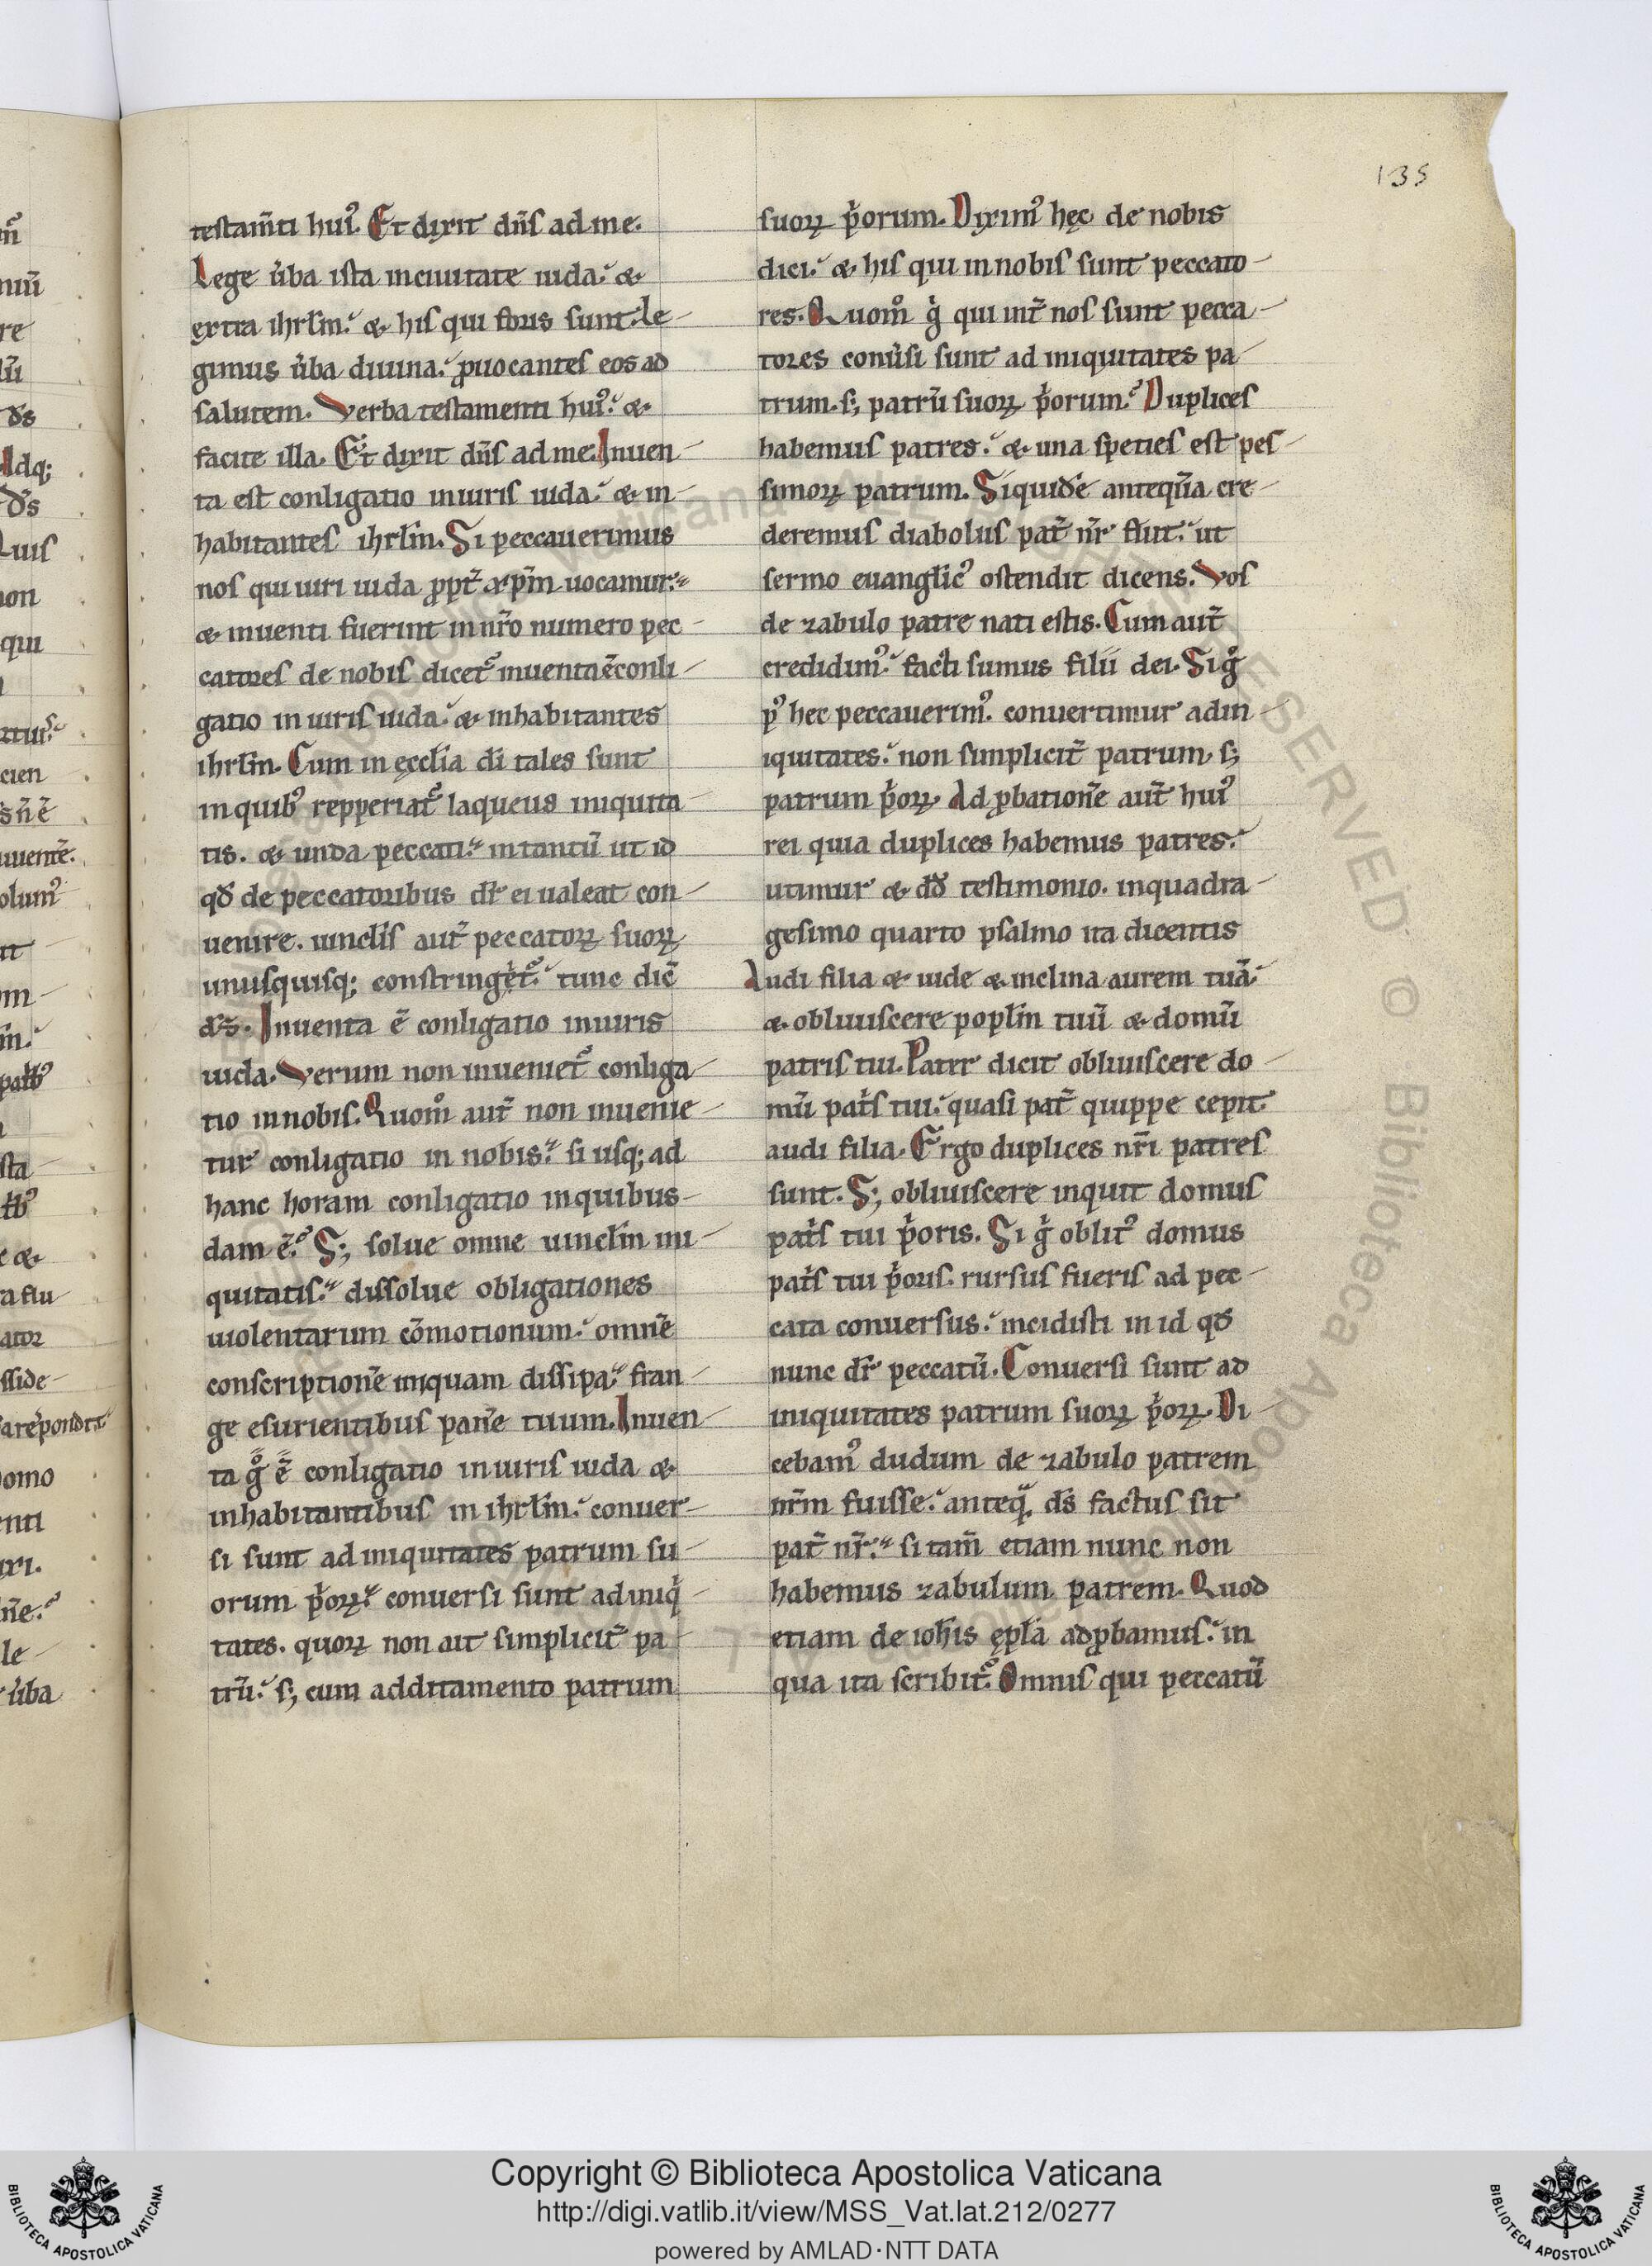 135
testam̄ti hui᷒. Et dixit dn̄s ad me.
Lege ůba ista in ciuitate iuda. &
extra ihrl̄m. & his qui foris sunt. Le-
gimus ůba diuina. ꝓuocantes eos ad
salutem. Verba testamenti hui᷒. &
facite illa. Et dixit dn̄s ad me. Inuen-
ta est conligatio in uiris iuda. & in-
habitantes ihrl̄m. Si peccauerimus
nos qui uiri iuda ꝓpt̄ xp̄m uocamur.
& inuenti fuerint in nr̄o numero pec-
catores de nobis dicet᷒ inuenta ē conli-
gatio in uiris iuda. & inhabitantes
ihrl̄m. Cum in ęccl̄ia dī tales sunt
in quib᷒ repperiat᷒ laqueus iniquita-
tis. & unda peccati. intantū ut id
qđ de peccatoribus dr̄ ei ualeat con-
uenire. uincl̄is aut̄ peccatoꝝ suoꝝ
unusquisq; constringet᷒. tunc dic̄
ds̄. Inuenta ē conligatio in uiris
iuda. Verum non inueniet᷒ conliga-
tio in nobis. Quom̊ aut̄ non inuenie-
tur conligatio in nobis. si usq; ad
hanc horam conligatio in quibus-
dam ē. S; solue omne uincl̄m ini-
quitatis. dissolue obligationes
uiolentarum cōmotionum. omnē
conscriptionē iniquam dissipa. fran-
ge esurientibus panē tuum. Inuen-
ta g̊ ē conligatio in uiris iuda &
inhabitantibus in ihrl̄m. conuer-
si sunt ad iniquitates patrum su-
orum pͥoꝝ. conuersi sunt ad iniqͥ-
tates. quoꝝ non ait simplicit̄ pa-
trū. s; cum additamento patrum
suoꝝ pͥorum. Dixim᷒ hęc de nobis
dici. & his qui in nobis sunt peccato-
res. Quom̊ gͥ qui int̄ nos sunt pecca-
tores conůsi sunt ad iniquitates pa-
trum. s; patrū suoꝝ pͥorum. Duplices
habemus patres. & una speties est pes-
simoꝝ patrum. Siquidē anteqūa cre-
deremus diabolus pat̄ nr̄ fuit. ut
sermo euangl̄ic᷒ ostendit dicens. Vos
de zabulo patre nati estis. Cum aut̄
credidim᷒. facti sumus filii dei. Si g̊
p᷒ hec peccauerim᷒. conuertimur ad in-
iquitates. non simplicit̄ patrum. s;
patrum pͥoꝝ. Ad ꝓbationē aut̄ hui᷒
rei quia duplices habemus patres.
utimur & dđ testimonio. in quadra-
gesimo quarto psalmo ita dicentis
Audi filia & uide & inclina aurem tuā.
& obliuiscere popl̄m tuū & domū
patris tui. Pater dicit obliuiscere do-
mū pat̄s tui. quasi pat̄ quippe cepit
audi filia. Ergo duplices nr̄i patres
sunt. S; obliuiscere inquit domus
pat̄s tui pͥoris. Si gͥ oblit᷒ domus
pat̄s tui pͥoris. rursus fueris ad pec-
cata conuersus. incidisti in id qđ
nunc dr̄ peccatū. Conuersi sunt ad
iniquitates patrum suoꝝ pͥoꝝ. Di-
cebam᷒ dudum de zabulo patrem
nr̄m fuisse. anteq̄ ds̄ factus sit
pat̄ nr̄. si tam̄ etiam nunc non
habemus zabulum patrem. Quod
etiam de ioh̄is ępl̄a adꝓbamus. in
qua ita scribit᷒. Omnis qui peccatū
Copyright © Biblioteca Apostolica Vaticana
http://digi.vatlib.it/view/MSS_Vat.lat.212/0277
powered by AMLAD·NTT DATA
BIBLIOTECA APOSTOLICA VATICANA
BIBLIOTECA APOSTOLICA VATICANA